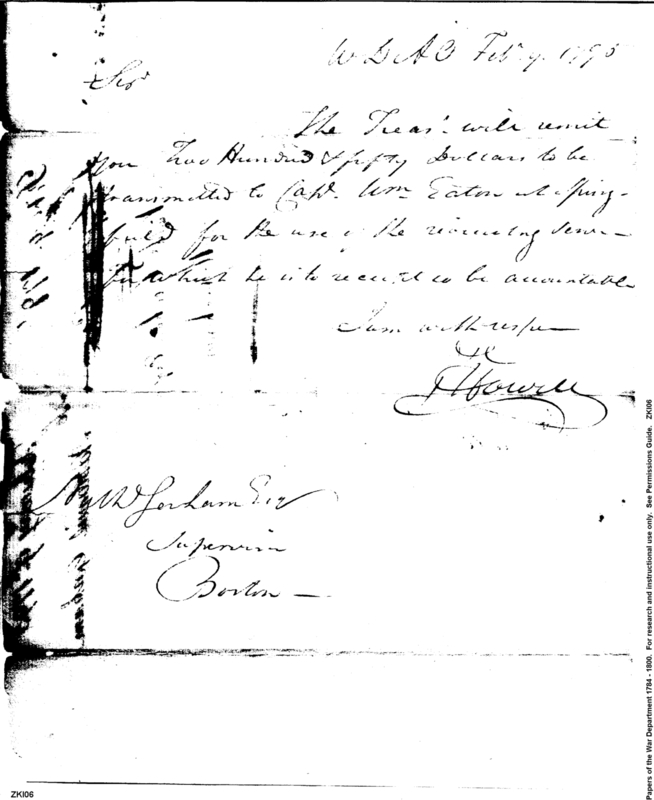 W D A O Feby 9. 1795
Sir
The Treasr. will remit
you Two Hundred & fifty Dollars to be
transmitted to Capt. Wm. Eaton at Spring-
field for the use of the recruiting service
for which he is to receipt to be accountable
I am with respe
J Howell
Nathl Gorham Esq
Supervisor
Boston
Papers of the War Department 1784 - 1800. For research and instructional use only. See Permissions Guide. ZKI06
ZKI06